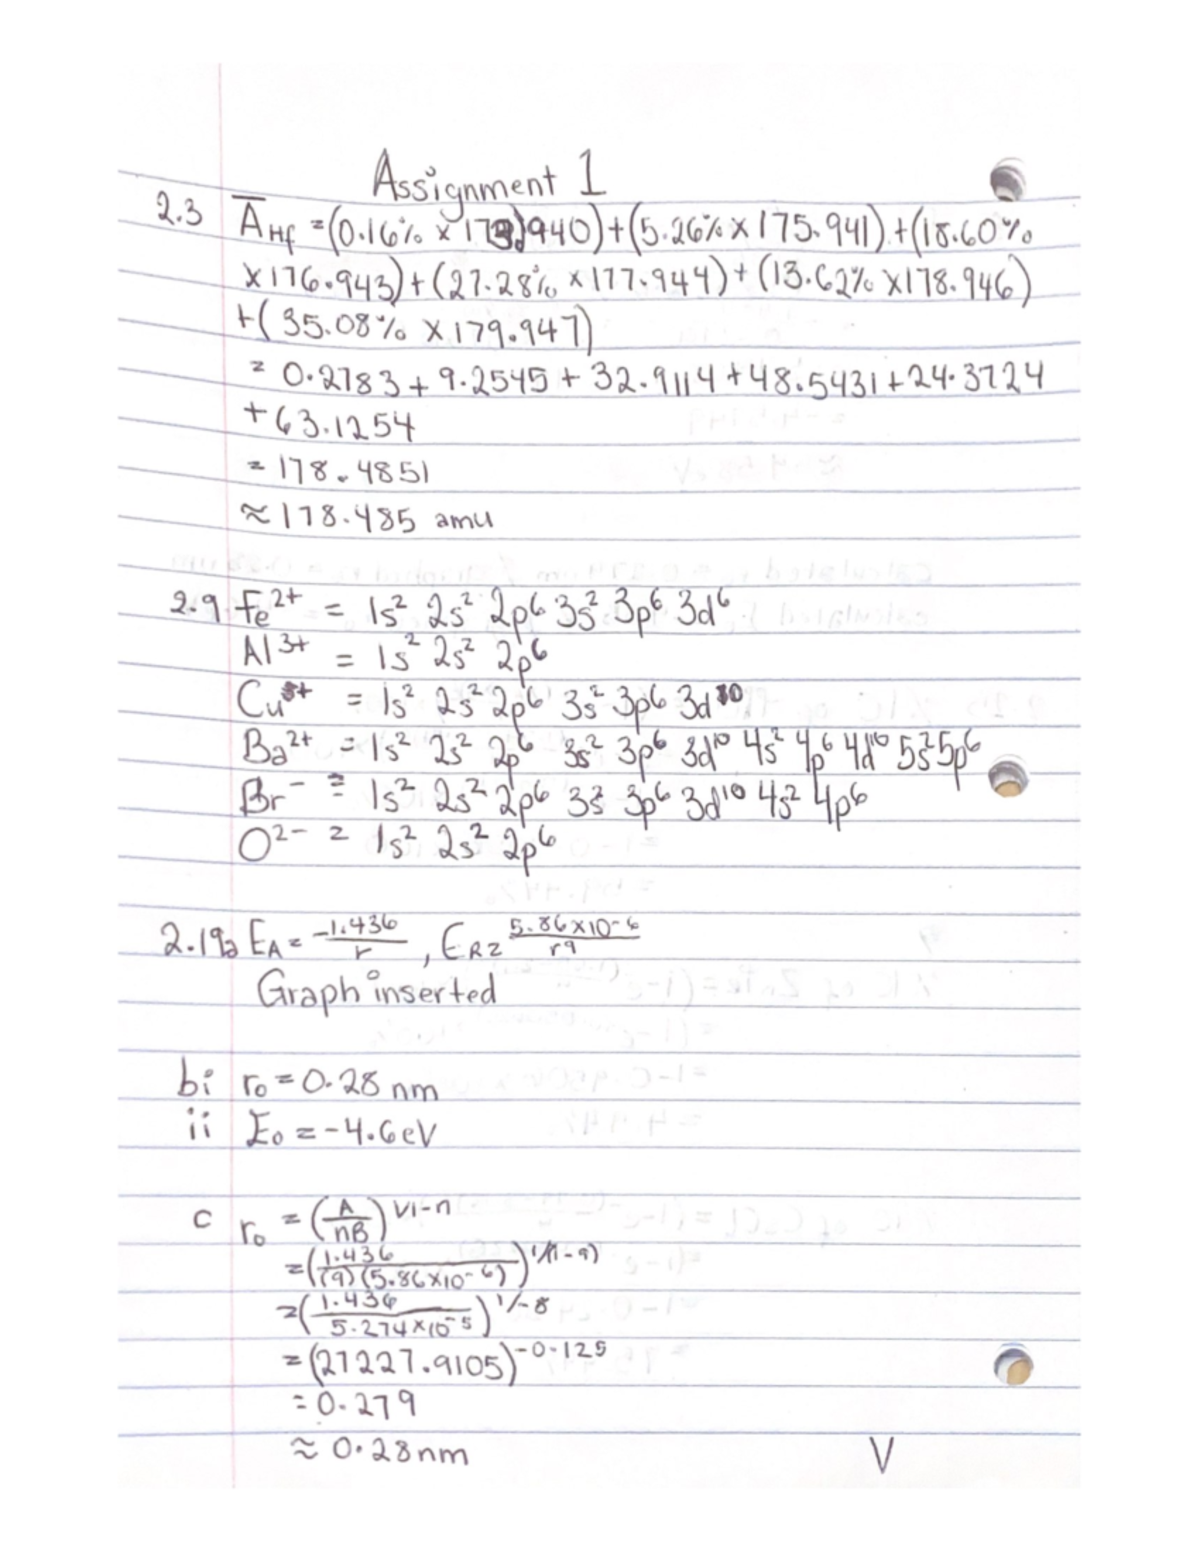 Assignment 1
2.3 A̅Hf = (0.16% x 173.940) + (5.26% x 175.941) + (18.60%
x 176.943) + (27.28% x 177.944) + (13.62% x 178.946)
+ (35.08% x 179.947)
= 0.2783 + 9.2545 + 32.9114 + 48.5431 + 24.3724
+ 63.1254
= 178.4851
≈ 178.485 amu
2.9 Fe²⁺ = 1s² 2s² 2p⁶ 3s² 3p⁶ 3d⁶
Al³⁺ = 1s² 2s² 2p⁶
Cu⁺ = 1s² 2s² 2p⁶ 3s² 3p⁶ 3d¹⁰
Ba²⁺ = 1s² 2s² 2p⁶ 3s² 3p⁶ 3d¹⁰ 4s² 4p⁶ 4d¹⁰ 5s² 5p⁶
Br⁻ = 1s² 2s² 2p⁶ 3s² 3p⁶ 3d¹⁰ 4s² 4p⁶
O²⁻ = 1s² 2s² 2p⁶
2.19a EA = -1.436/r , ER = 5.86x10-6/r9
Graph inserted
bi r₀ = 0.28 nm
ii E₀ = -4.6eV
c r₀ = (A/nB)^1/1-n
= (1.436/(9)(5.86x10-6))^1/(1-9)
= (1.436/5.274x10-5)^1/-8
= (27227.9105)^-0.125
= 0.279
≈ 0.28nm
V